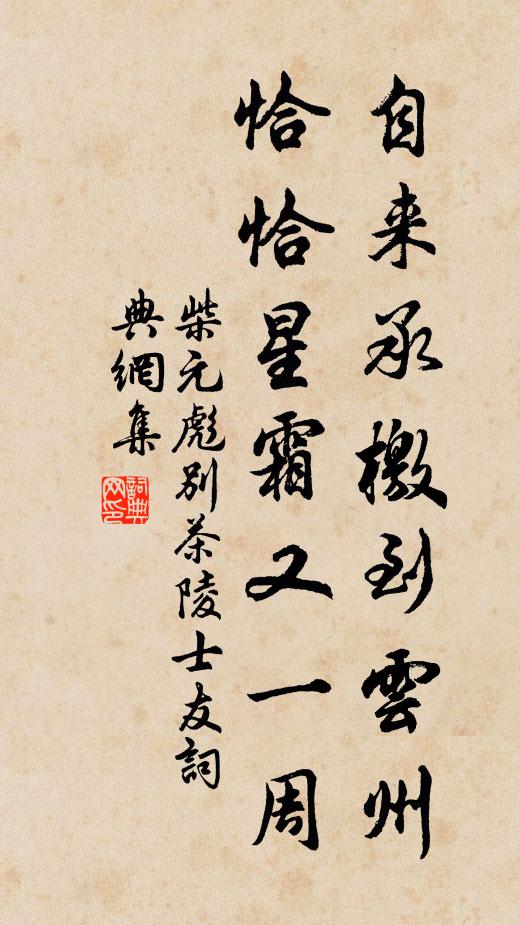 自来承檄到雲州
恰恰星霜又一周
柴元彪別茶陵士友詞
典網集
詞典网印